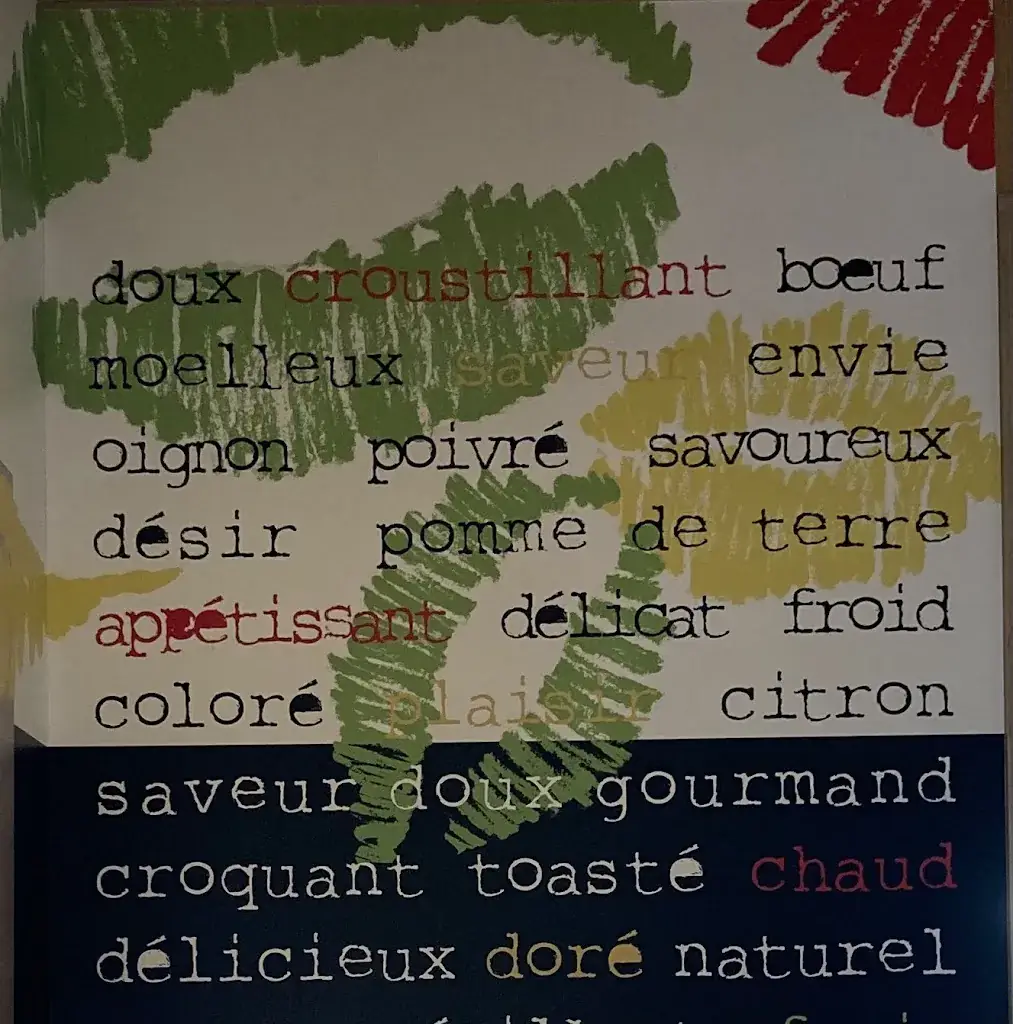 doux croustillant bœuf
moelleux saveur envie
oignon poivré savoureux
désir pomme de terre
appétissant délicat froid
coloré plaisir citron
saveur doux gourmand
croquant toasté chaud
délicieux doré naturel